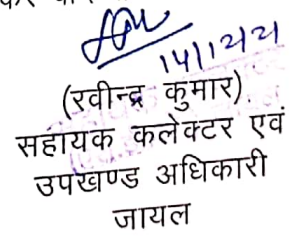 14/12/21
(रवीन्द्र कुमार)
सहायक कलेक्टर एवं
उपखण्ड अधिकारी
जायल